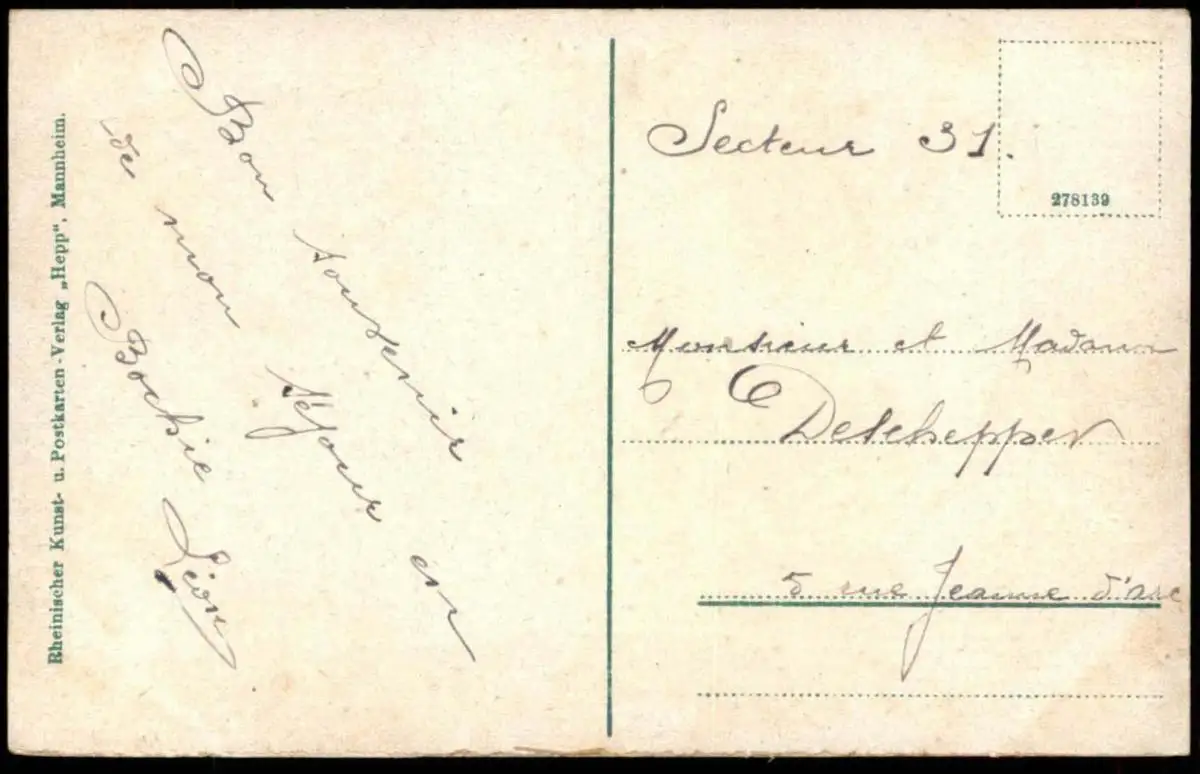 Rheinischer Kunst- u. Postkarten-Verlag „Hepp“, Mannheim.
Bon souvenir
de mon séjour en
Bochie
Léon
Secteur 31.
278139
Monsieur et Madame
Deschepper
5 rue Jeanne d'arc